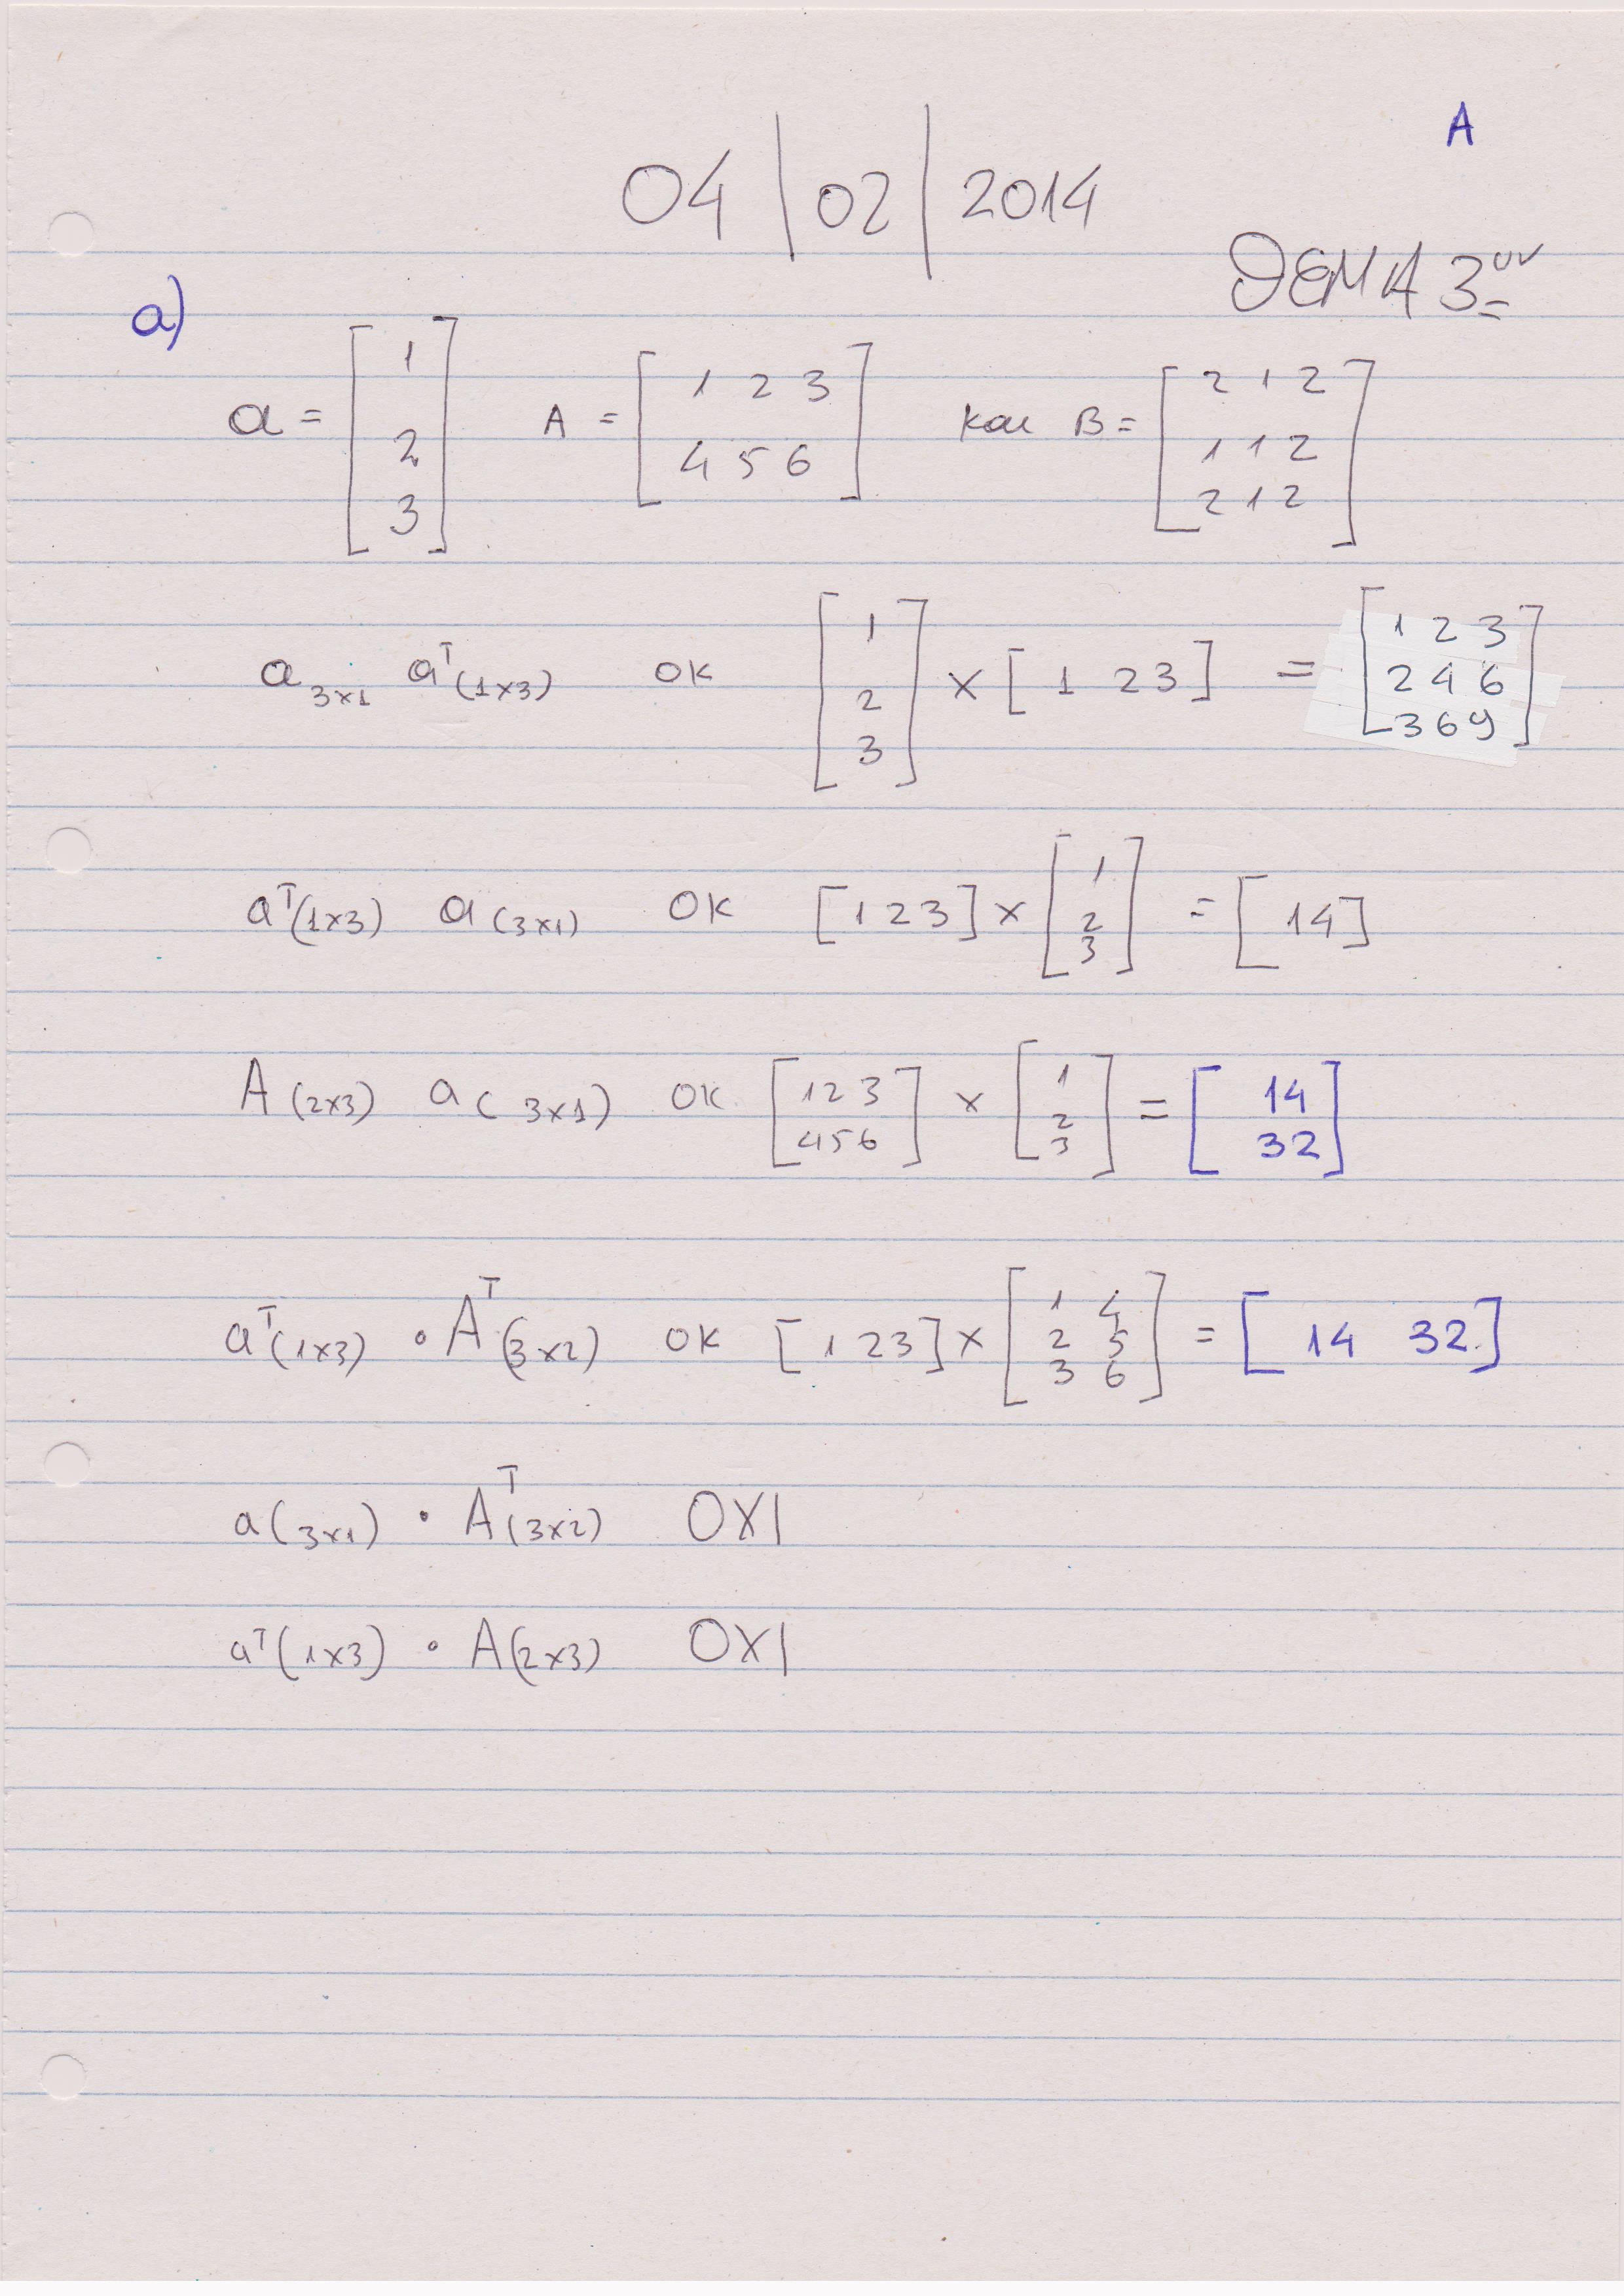 A
04/02/2014
ΘΕΜΑ 3ον
a)
a = [1 2 3] A = [1 2 3 4 5 6] και B = [2 1 2 1 1 2 2 1 2]
a 3x1 aᵀ(1x3) OK [1 2 3] x [1 2 3] = [1 2 3 2 4 6 3 6 9]
aᵀ(1x3) a(3x1) OK [1 2 3] x [1 2 3] = [14]
A(2x3) a(3x1) OK [1 2 3 4 5 6] x [1 2 3] = [14 32]
aᵀ(1x3) · Aᵀ(3x2) OK [1 2 3] x [1 4 2 5 3 6] = [14 32]
a(3x1) · Aᵀ(3x2) ΟΧΙ
aᵀ(1x3) · A(2x3) ΟΧΙ